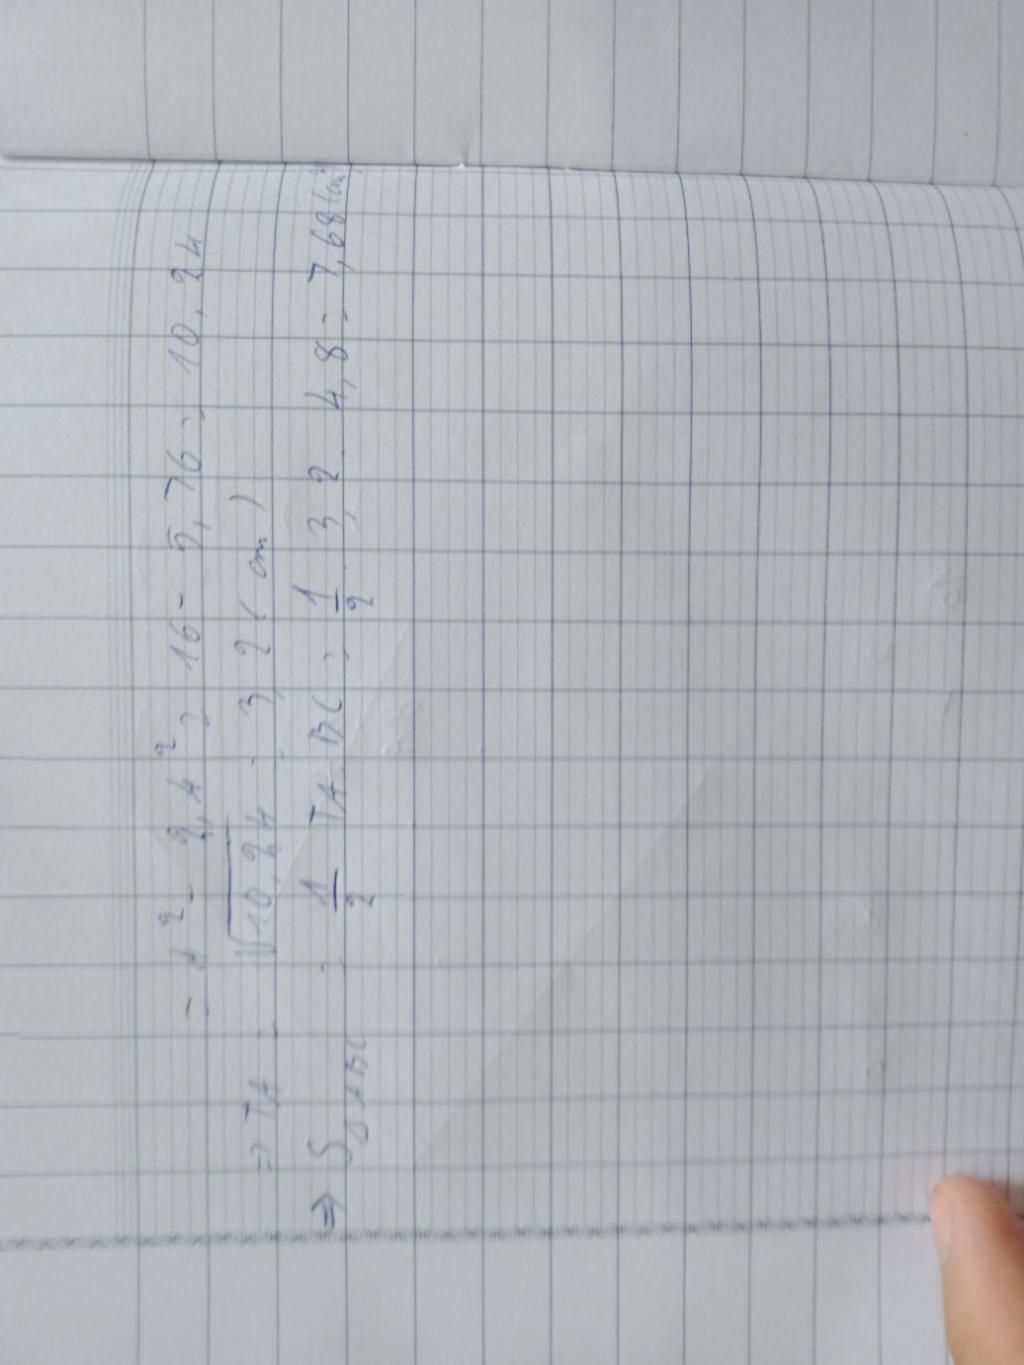 = 4² - 2,4² = 16 - 5,76 = 10,24
=> TA = √10,24 = 3,2 (cm)
=> S∆ABC = 1/2 TA . BC = 1/2 . 3,2 . 4,8 = 7,68 (cm²)